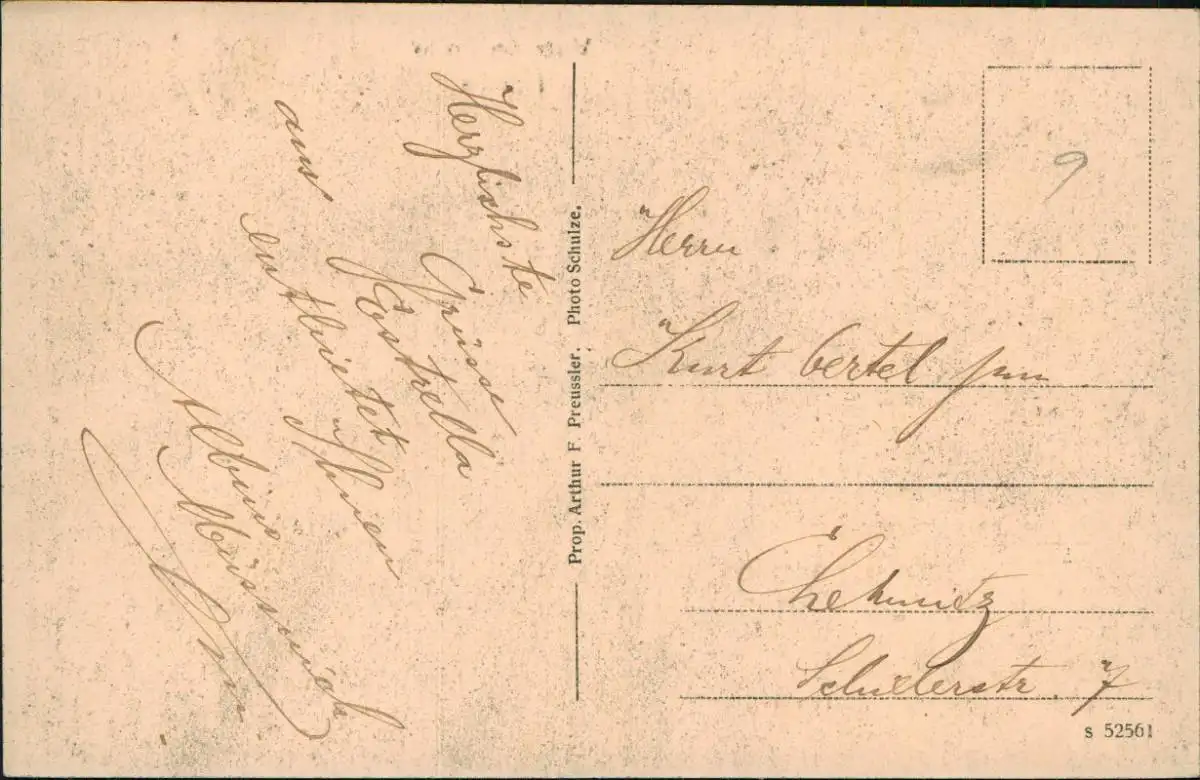 Herzlichste
Grüsse
aus Estrella
entbietet Ihnen
Albin
Prop. Arthur F. Preussler. Photo Schulze.
9
Herrn
Kurt Oertel jun
Chemnitz
Schillerstr. 7
s 52561